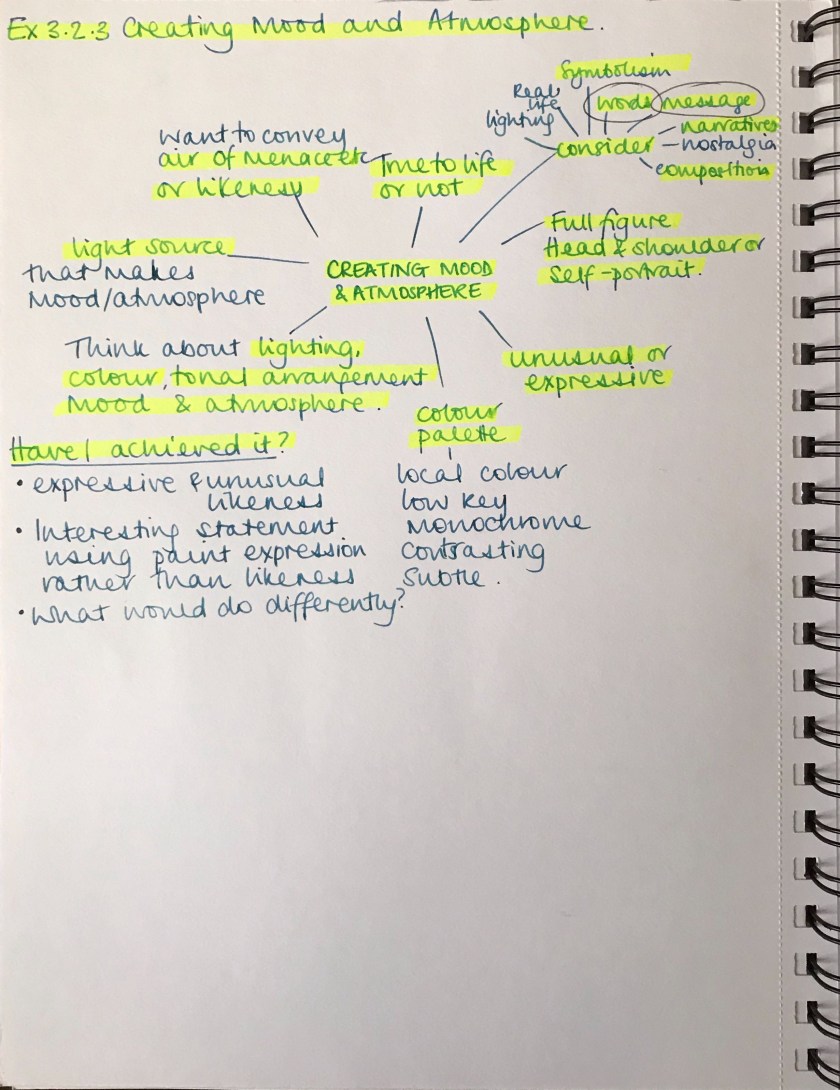 Ex 3.2.3 Creating Mood and Atmosphere.
Symbolism
Real
life
lighting
words message
narratives
consider
nostalgia
composition
Want to convey
air of menace etc
or likeness
True to life
or not
Full figure
Head & shoulder or
Self-portrait.
light source
that makes
Mood/atmosphere
CREATING MOOD
& ATMOSPHERE
Think about lighting,
colour, tonal arrangement
Mood & atmosphere.
unusual or
expressive
colour
palette
local colour
low key
Monochrome
contrasting
subtle.
Have I achieved it?
• expressive & unusual
likeness
• Interesting statement
using paint expression
rather than likeness
• What would do differently?